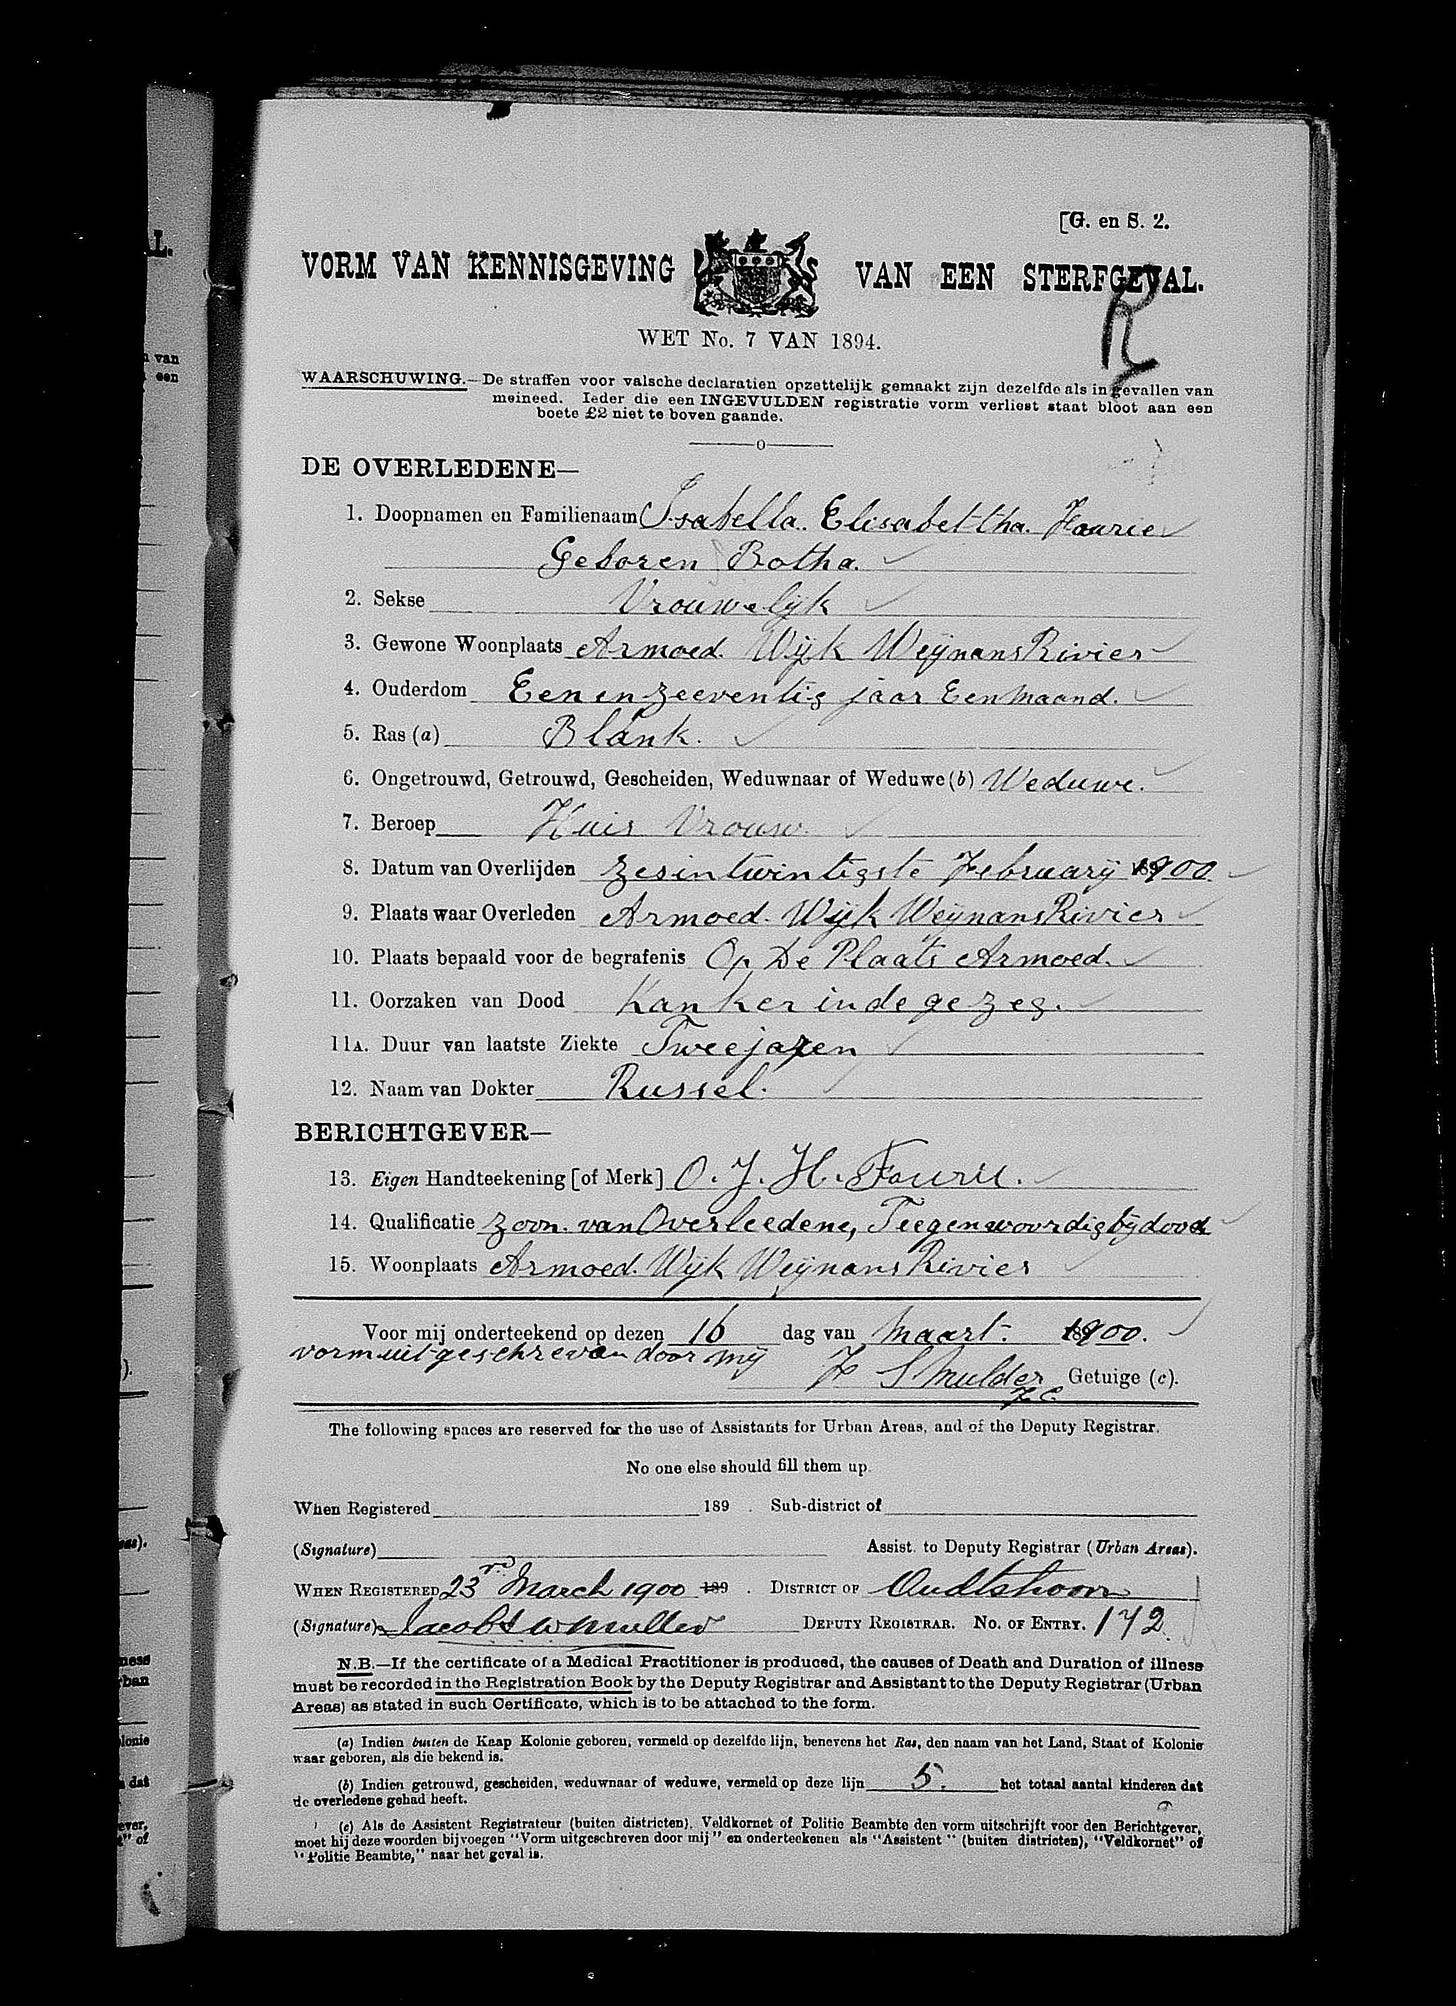 [G. en S. 2.
VORM VAN KENNISGEVING VAN EEN STERFGEVAL.
R
WET No. 7 VAN 1894.
WAARSCHUWING.—De straffen voor valsche declaratien opzettelijk gemaakt zijn dezelfde als in gevallen van
meineed. Ieder die een INGEVULDEN registratie vorm verliest staat bloot aan een
boete £2 niet te boven gaande.
DE OVERLEDENE—
1. Doopnamen en Familienaam Isabella. Elisabettha. Fourie
Geboren Botha.
2. Sekse Vrouwelijk
3. Gewone Woonplaats Armoed. Wijk WeijnansRivier
4. Ouderdom Een en zeeventig jaar Een maand.
5. Ras (a) Blank.
6. Ongetrouwd, Getrouwd, Gescheiden, Weduwnaar of Weduwe (b) Weduwe.
7. Beroep Huis Vrouw.
8. Datum van Overlijden zesintwintigste Februarij 1900.
9. Plaats waar Overleden Armoed. Wijk WeijnansRivier
10. Plaats bepaald voor de begrafenis Op De Plaats Armoed.
11. Oorzaken van Dood Kanker in de gezeg.
11A. Duur van laatste Ziekte Twee jaren
12. Naam van Dokter Russel.
BERICHTGEVER—
13. Eigen Handteekening [of Merk] O. J. H. Fourie.
14. Qualificatie zoon. van Overleedene, Teegenwoordig bij dood
15. Woonplaats Armoed. Wijk Weijnans Rivier
Voor mij onderteekend op dezen 16 dag van Maart. 1900.
vorm uitgeschreven door mij
F S Mulder Getuige (c).
The following spaces are reserved for the use of Assistants for Urban Areas, and of the Deputy Registrar.
No one else should fill them up.
When Registered 189 . Sub-district of
(Signature) Assist. to Deputy Registrar (Urban Areas).
WHEN REGISTERED 23rd March 1900 189 . DISTRICT OF Oudtshoorn
(Signature) DEPUTY REGISTRAR. NO. OF ENTRY. 172.
N.B.—If the certificate of a Medical Practitioner is produced, the causes of Death and Duration of illness
must be recorded in the Registration Book by the Deputy Registrar and Assistant to the Deputy Registrar (Urban
Areas) as stated in such Certificate, which is to be attached to the form.
(a) Indien buiten de Kaap Kolonie geboren, vermeld op dezelfde lijn, benevens het Ras, den naam van het Land, Staat of Kolonie
waar geboren, als die bekend is.
(b) Indien getrouwd, gescheiden, weduwnaar of weduwe, vermeld op deze lijn 5. het totaal aantal kinderen dat
de overledene gehad heeft.
(c) Als de Assistent Registrateur (buiten districten), Veldkornet of Politie Beambte den vorm uitschrijft voor den Berichtgever,
moet hij deze woorden bijvoegen "Vorm uitgeschreven door mij" en onderteekenen als "Assistent" (buiten districten), "Veldkornet" of
"Politie Beambte," naar het geval is.